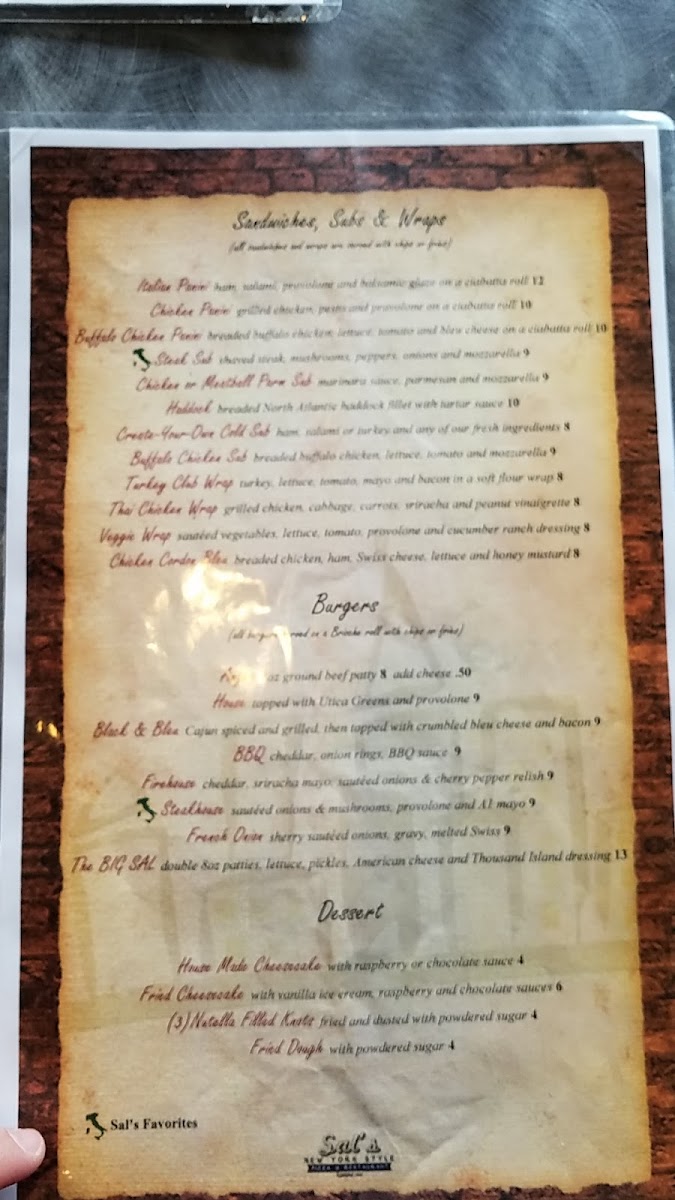 Sandwiches, Subs & Wraps
(all sandwiches and wraps are served with chips or fries)
Italian Panini ham, salami, provolone and balsamic glaze on a ciabatta roll 12
Chicken Panini grilled chicken, pesto and provolone on a ciabatta roll 10
Buffalo Chicken Panini breaded buffalo chicken, lettuce, tomato and bleu cheese on a ciabatta roll 10
Steak Sub shaved steak, mushrooms, peppers, onions and mozzarella 9
Chicken or Meatball Parm Sub marinara sauce, parmesan and mozzarella 9
Haddock breaded North Atlantic haddock fillet with tartar sauce 10
Create-Your-Own Cold Sub ham, salami or turkey and any of our fresh ingredients 8
Buffalo Chicken Sub breaded buffalo chicken, lettuce, tomato and mozzarella 9
Turkey Club Wrap turkey, lettuce, tomato, mayo and bacon in a soft flour wrap 8
Thai Chicken Wrap grilled chicken, cabbage, carrots, sriracha and peanut vinaigrette 8
Veggie Wrap sautéed vegetables, lettuce, tomato, provolone and cucumber ranch dressing 8
Chicken Cordon Bleu breaded chicken, ham, Swiss cheese, lettuce and honey mustard 8
Burgers
(all burgers served on a Brioche roll with chips or fries)
oz ground beef patty 8 add cheese .50
House topped with Utica Greens and provolone 9
Black & Bleu Cajun spiced and grilled, then topped with crumbled bleu cheese and bacon 9
BBQ cheddar, onion rings, BBQ sauce 9
Firehouse cheddar, sriracha mayo, sautéed onions & cherry pepper relish 9
Steakhouse sautéed onions & mushrooms, provolone and A1 mayo 9
French Onion sherry sautéed onions, gravy, melted Swiss 9
The BIG SAL double 8oz patties, lettuce, pickles, American cheese and Thousand Island dressing 13
Dessert
House Made Cheesecake with raspberry or chocolate sauce 4
Fried Cheesecake with vanilla ice cream, raspberry and chocolate sauces 6
(3) Nutella Filled Knots fried and dusted with powdered sugar 4
Fried Dough with powdered sugar 4
Sal's Favorites
Sal's
NEW YORK STYLE
PIZZA & RESTAURANT